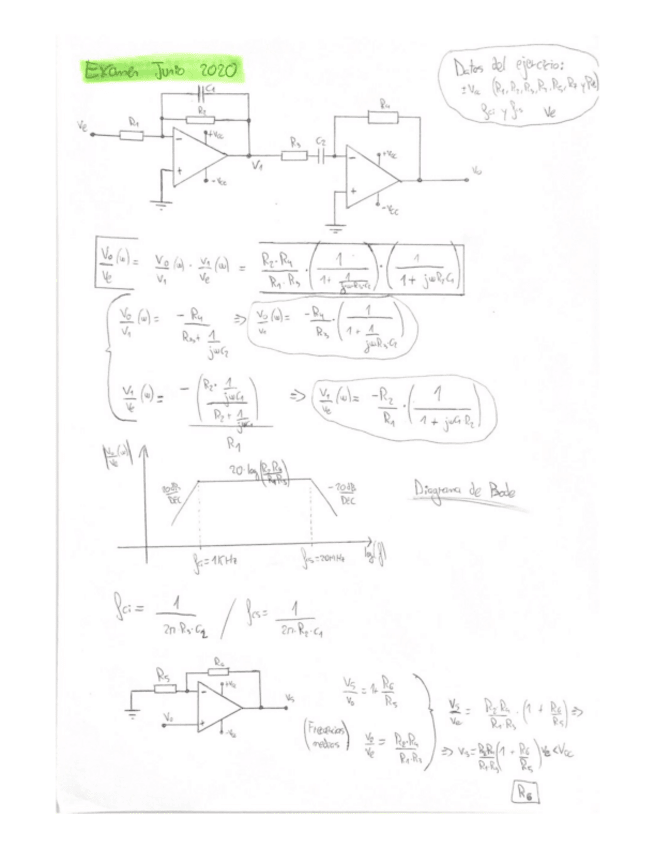 Examen Junio 2020
Datos del ejercicio:
± Vcc (R1, R2, R3, R4, R5, R6)
fci y fcs Ve
C1
R2
Ve R1 +Vcc -Vcc V1 R3 C2 R4 +Vcc -Vcc Vo
Vo/Ve (ω) = Vo/V1 (ω) · V1/Ve (ω) = R2·R4 / R1·R3 · (1 / 1 + 1/jωR3C2) · (1 / 1 + jωR2C1)
Vo/V1 (ω) = -R4 / R3 + 1/jωC2 => Vo/V1 (ω) = -R4/R3 · (1 / 1 + 1/jωR3·C2)
V1/Ve (ω) = -(R2 · 1/jωC1 / R2 + 1/jωC1) / R1 => V1/Ve (ω) = -R2/R1 · (1 / 1 + jωC1R2)
|Vo/Ve (ω)|
20·log(R2·R4/R1·R3)
20dB/DEC
-20dB/DEC
Diagrama de Bode
fci = 1KHz fcs = 20MHz log(f)
fci = 1 / 2π·R3·C2 / fcs = 1 / 2π·R2·C1
R5 R6 +Vcc Vs Vo
Vs/Vo = 1 + R6/R5
(Frecuencias medias) Vo/Ve = R2·R4 / R1·R3
Vs/Ve = R2·R4 / R1·R3 · (1 + R6/R5) =>
=> Vs = R2·R4 / R1·R3 (1 + R6/R5) Ve < Vcc
R6